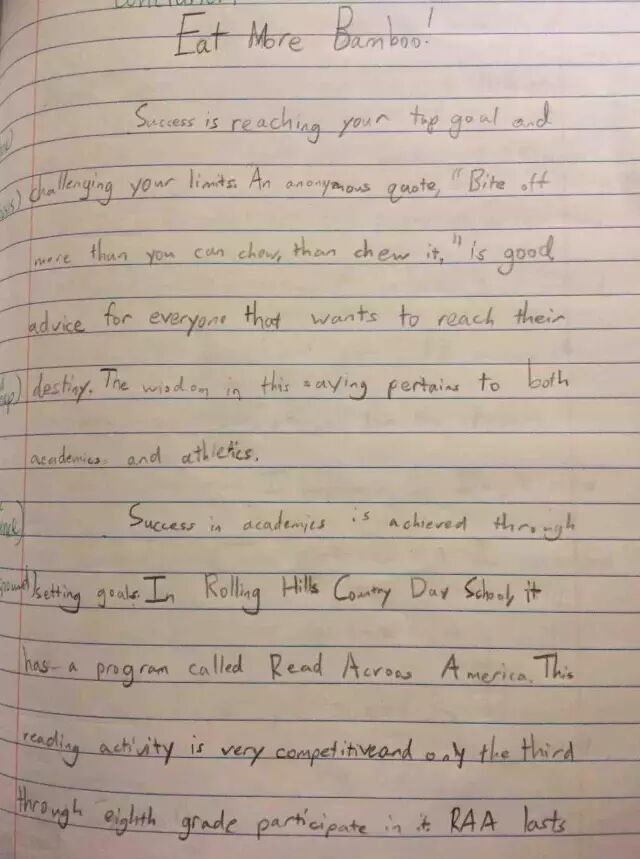 Eat More Bamboo!
Success is reaching your top goal and
challenging your limits. An anonymous quote, "Bite off
more than you can chew, than chew it," is good
advice for everyone that wants to reach their
destiny. The wisdom in this saying pertains to both
academics and athletics.
Success in academics is achieved through
setting goals. In Rolling Hills Country Day School, it
has a program called Read Across America. This
reading activity is very competitive and only the third
through eighth grade participate in it. RAA lasts